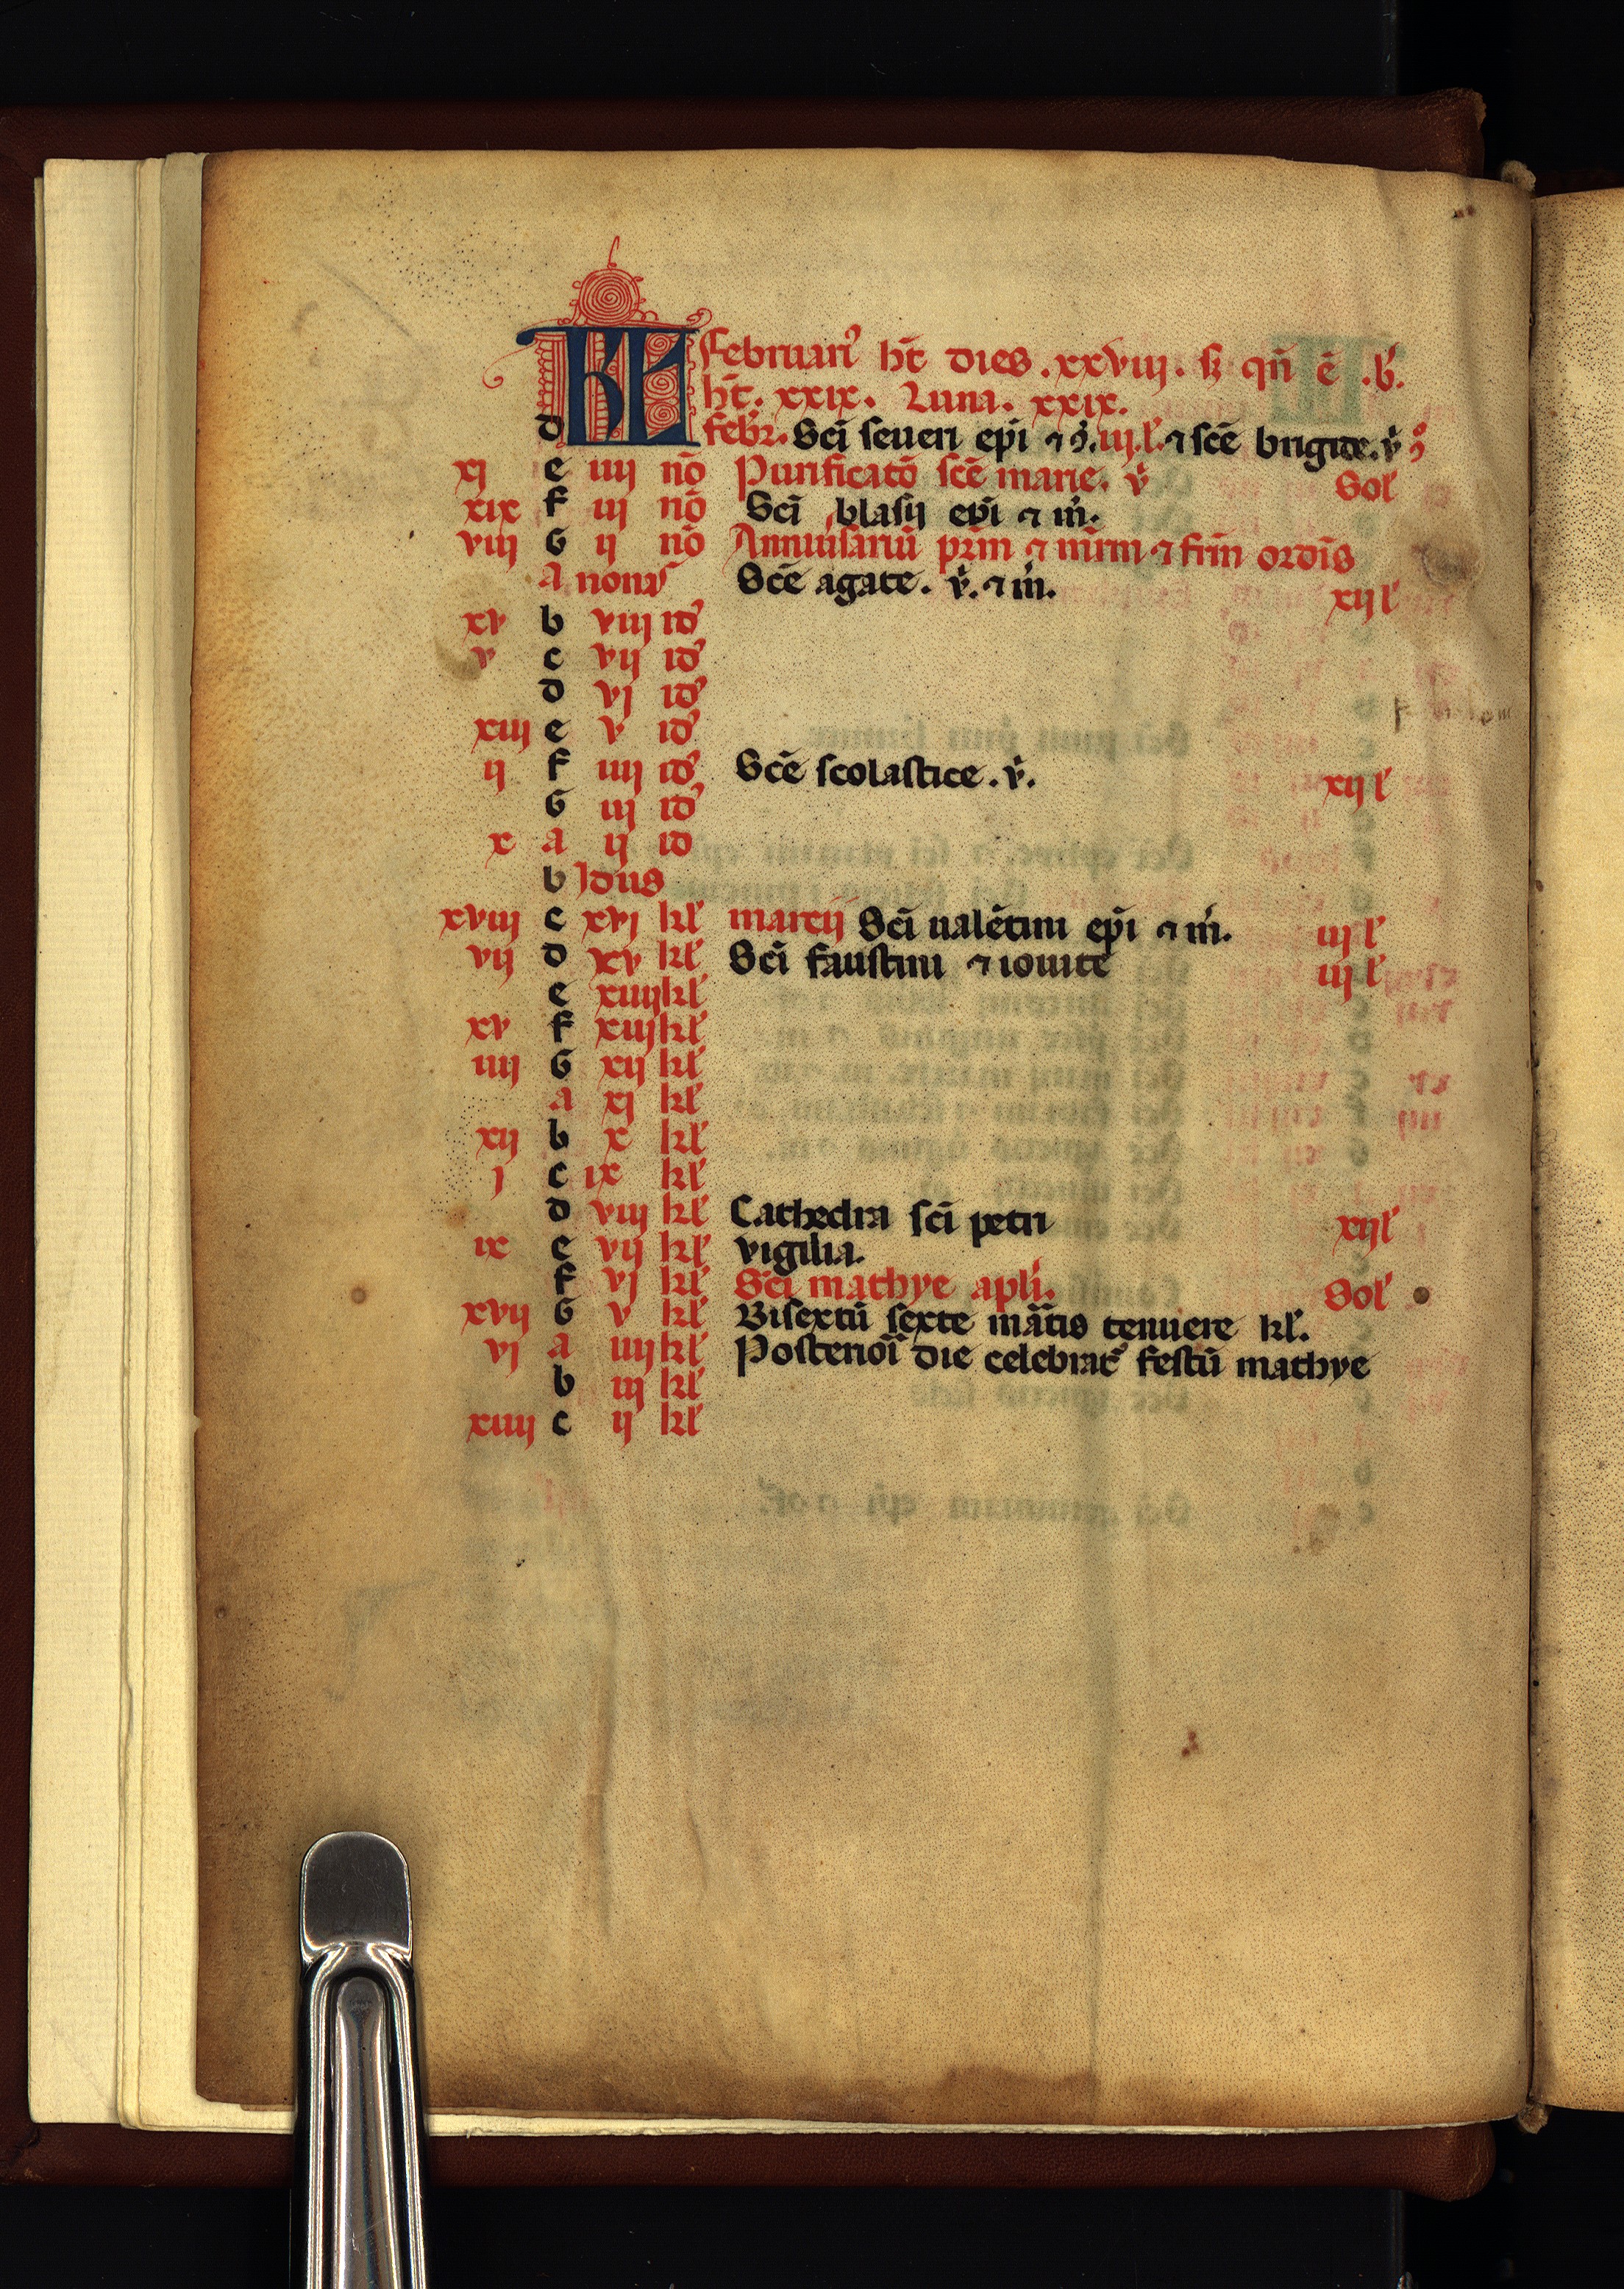 KL februari᾽ hr̄t dies .xxviij. s; qn̄ ē .b᾽.
hr̄t. xxix. Luna. xxix.
d febr. Scī seueri ep̄i ⁊ ꝯ᾽. iij. l᾽. ⁊ scē brigide. v᾽
xj e iiij nō Purificatō scē marie. v᾽ Sol᾽
xix f iij nō Scī blasij ep̄i ⁊ m᾽.
viij G ij nō Anniu᾽sariū pr̄m ⁊ mr̄m ⁊ fr̄m ordīs
a nonas Scē agate. v᾽. ⁊ m᾽. xij l᾽
xv b viij id᾽
v c vij id᾽
d vj id᾽
xiij e v id᾽
ij f iiij id᾽ Scē scolastice. v᾽. xij l᾽
G iij id᾽
x a ij id
b Idus
xviij c xvj kl᾽ marcij Scī ualētini ep̄i ⁊ m᾽. iij l᾽
vij d xv kl᾽ Scī faustini ⁊ iouite iij l᾽
e xiiij kl᾽
xv f xiij kl᾽
iiij G xij kl᾽
a xj kl᾽
xij b x kl᾽
j c ix kl᾽
d viij kl᾽ Cathedra scī petri xij l᾽
ix e vij kl᾽ vigilia.
f vj kl᾽ Scī mathye apl᾽i. Sol᾽
xvij G v kl᾽ Bisextū sexte mār̄tis tenuere kl᾽.
vj a iiij kl᾽ Posteriori die celebrat᾽ festū mathye
b iij kl᾽
xiiij c ij kl᾽